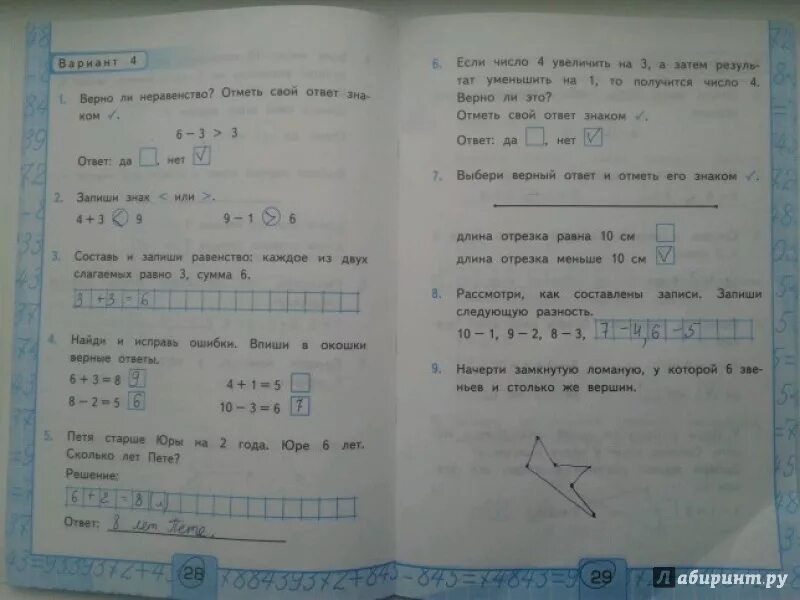 Вариант 4
1. Верно ли неравенство? Отметь свой ответ зна-
ком ✓.
6 − 3 > 3
Ответ: да □, нет ☑
2. Запиши знак < или >.
4 + 3 < 9 9 − 1 > 6
3. Составь и запиши равенство: каждое из двух
слагаемых равно 3, сумма 6.
3 + 3 = 6
4. Найди и исправь ошибки. Впиши в окошки
верные ответы.
6 + 3 = 8 9 4 + 1 = 5 □
8 − 2 = 5 6 10 − 3 = 6 7
5. Петя старше Юры на 2 года. Юре 6 лет.
Сколько лет Пете?
Решение:
6 + 2 = 8 (л)
Ответ: 8 лет Пете.
28
6. Если число 4 увеличить на 3, а затем резуль-
тат уменьшить на 1, то получится число 4.
Верно ли это?
Отметь свой ответ знаком ✓.
Ответ: да □, нет ☑
7. Выбери верный ответ и отметь его знаком ✓.
длина отрезка равна 10 см □
длина отрезка меньше 10 см ☑
8. Рассмотри, как составлены записи. Запиши
следующую разность.
10 − 1, 9 − 2, 8 − 3, 7 − 4, 6 − 5
9. Начерти замкнутую ломаную, у которой 6 зве-
ньев и столько же вершин.
29
Лабиринт.ру